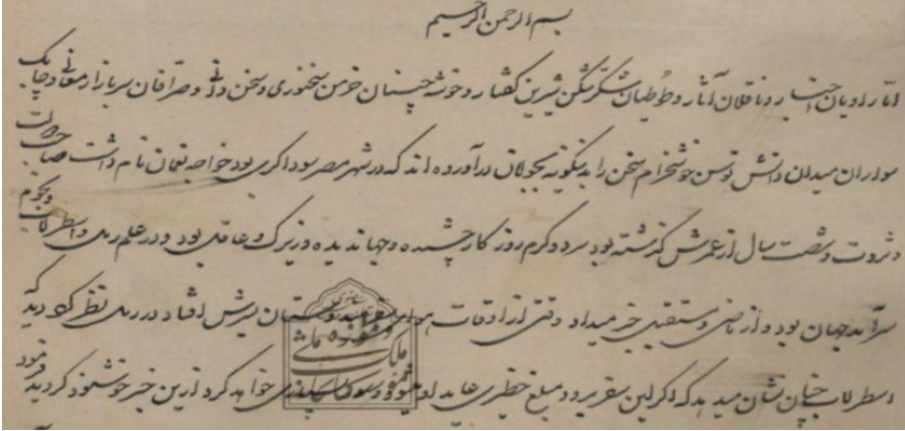 بسم الله الرحمن الرحیم
اما راویان اخبار و ناقلان آثار و طوطیان شکرشکن شیرین گفتار و خوشه چینان خرمن سخنوری و سخن دانی و صرافان سر بازار معانی و چابک
سواران میدان دانش توسن خوشخرام سخن را بدینگونه بجولان درآورده اند که در شهر مصر سوداگری بود خواجه نعمان نام داشت صاحب دولت
و ثروت و شصت سال از عمرش گذشته بود سرد و گرم روزگار چشیده و جهاندیده و زیرک و عاقل بود و در علم رمل و اسطرلاب و نجوم
سرآمد جهان بود و از ماضی و مستقبل خبر میداد وقتی از اوقات هوای سفر هندوستان بسرش افتاد در رمل نظر کرد دید
اسطرلاب چنان نشان میدهد که اگر این سفر برود مبلغ خطیری عاید او میشود و سودی بسیار خواهد کرد ازین خبر خوشنود گردید فرمود